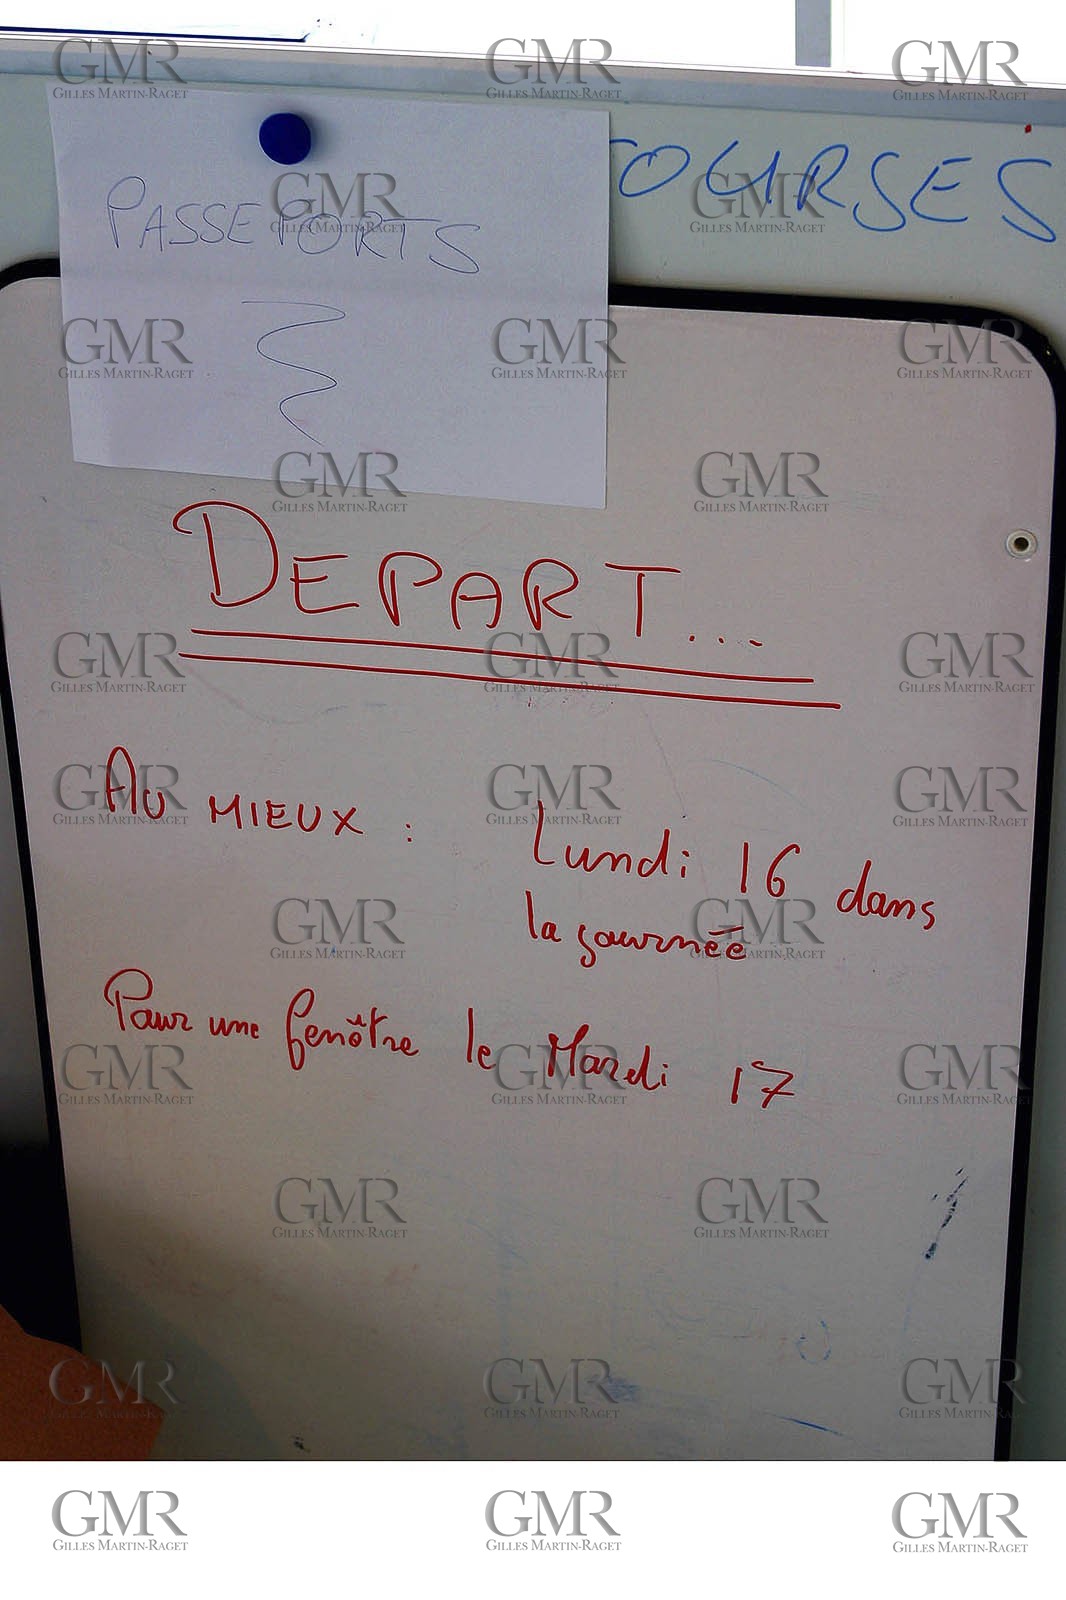 GMR
GILLES MARTIN-RAGET
COURSES
PASSEPORTS
DEPART...
AU MIEUX : Lundi 16 dans
la journée
Pour une fenêtre le Mardi 17